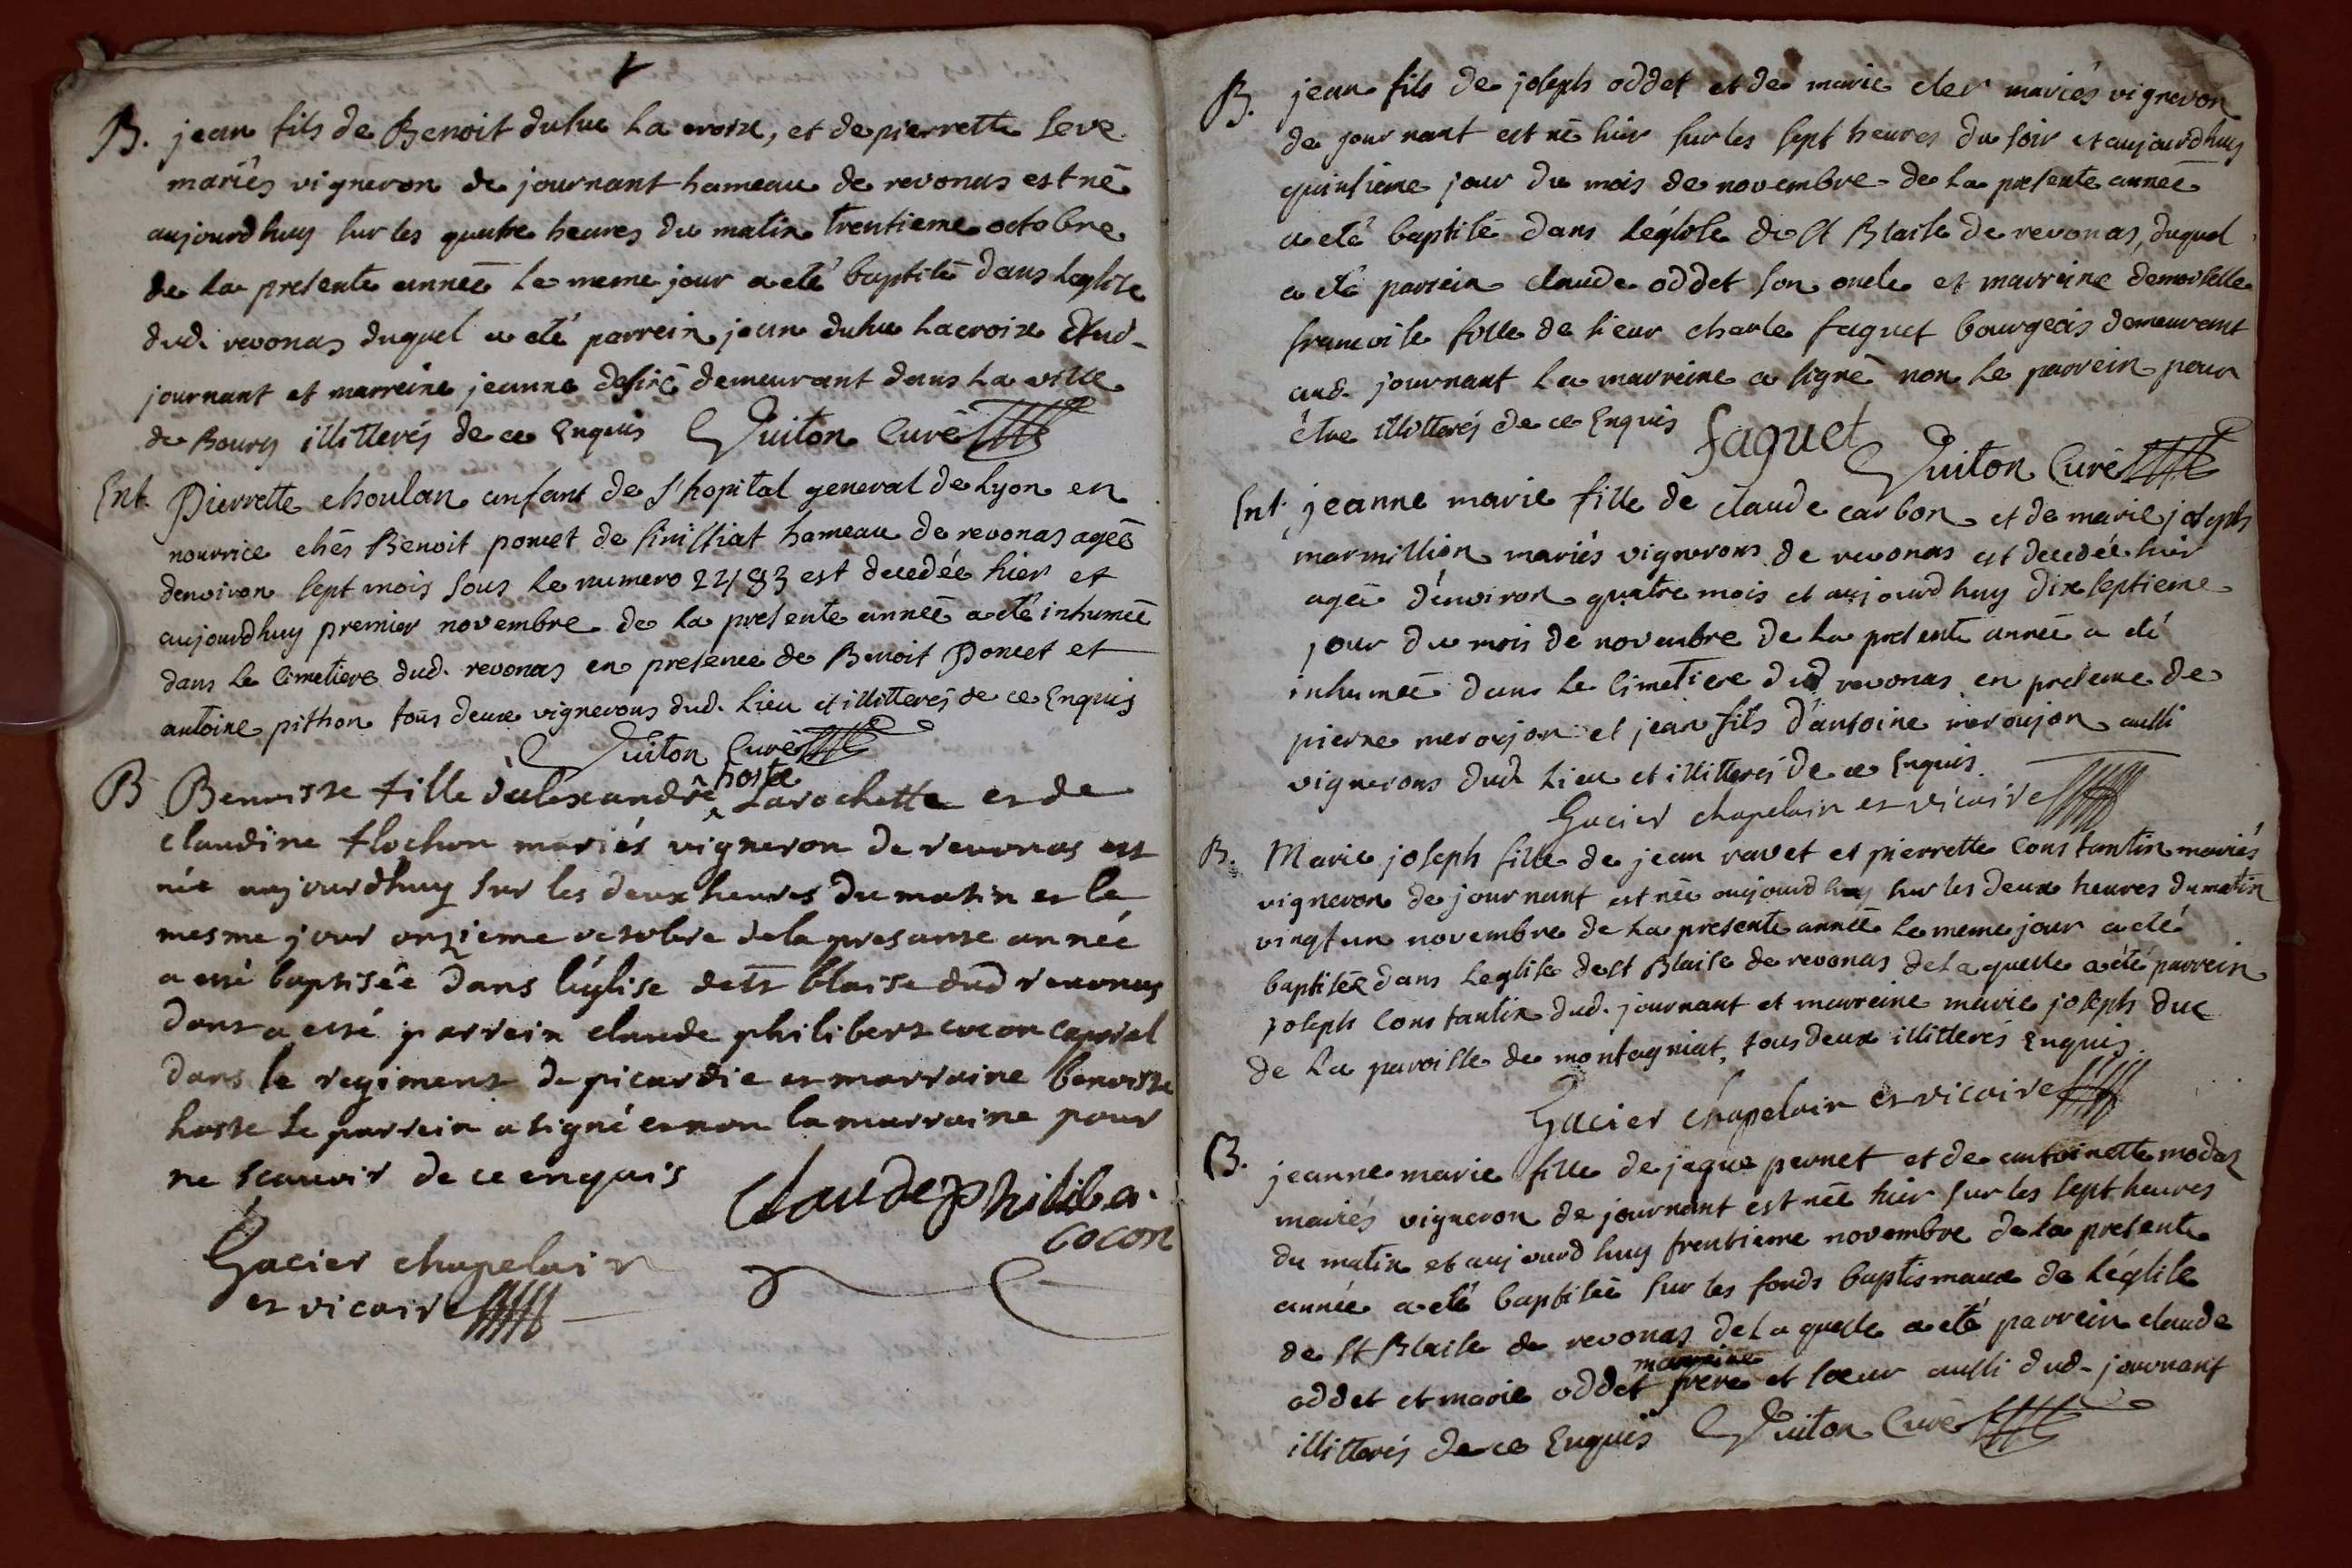 B. jean fils de Benoit duluc la croix, et de pierrette seve
mariés vigneron de journant hameau de revonas est né
aujourdhuy sur les quatre heures du matin trentieme octobre
de la presente année le meme jour a eté baptisé dans leglise
dud. revonas duquel a eté parrein jean duluc lacroix dud.
journant et marreine jeanne desiré demeurant dans la ville
de Bourg illitterés de ce Enquis Guiton Curé
Ent. Pierrette choulan anfant de l'hopital general de lyon en
nourrice chés Benoit poncet de sinissiat hameau de revonas ageé
denviron sept mois sous le numero 2483 est decedée hier et
aujourdhuy premier novembre de la presente année a eté inhumeé
dans le Cimetiere dud. revonas en presence de Benoit Poncet et
antoine pithon tous deux vignerons dud. lieu et illitterés de ce Enquis
Guiton Curé
B Benoisse fille d'alexandre hoste Larochette et de
claudine flochon mariés vigneron de revonas est
née aujourdhuy sur les deux heures du matin et le
mesme jour onzieme octobre dela presante année
a esté baptisée dans l'église de st blaise dud revonas
dont a esté parrein claude philibert cocon caporal
dans le regiment de picardie et marraine benoiste
hoste le parrein a signé et non la marraine pour
ne scavoir de ce enquis
Claude philiber
cocon
Gacier chapelain
et vicaire
B. jean fils de joseph oddet et de marie cler mariés vigneron
de journant est né hier sur les sept heures du soir et aujourdhuy
quinsieme jour du mois de novembre de la presente année
a eté baptisé dans léglise de St Blaise de revonas, duquel
a eté parrein claude oddet son oncle et marreine demoiselle
francoise fille de sieur charle faguet bourgeois demeurant
aud. journant la marreine a signé non le parrein pour
être illitterés de ce Enquis faguet
Guiton Curé
Ent. jeanne marie fille de claude carbon et de marie joseph
marmillion mariés vignerons de revonas est decedée hier
ageé d'environ quatre mois et aujourdhuy dix septieme
jour du mois de novembre de la presente année a eté
inhumeé dans le Cimetiere dud revonas en presence de
pierre meroujon et jean fils d'antoine meroujon aussi
vignerons dud lieu et illitterés de ce Enquis.
Gacier chapelain et vicaire
B. Marie joseph fille de jean ravet et pierrette Constantin mariés
vigneron de journant est née aujourdhuy sur les deux heures du matin
vingt un novembre de la presente année le meme jour a eté
baptisée dans leglise de st Blaise de revonas de laquelle a été parrein
joseph Constantin dud. journant et marreine marie joseph duc
de la paroisse de montagniat, tous deux illitterés Enquis.
Gacier chapelain et vicaire
B. jeanne marie fille de jaque pernet et de antoinette modas
mariés vigneron de journant est née hier sur les sept heures
du matin et aujourdhuy trentieme novembre de la presente
année a eté baptisée sur les fonds baptismaux de l'église
de St Blaise de revonas de laquelle a eté parrein claude
marreine
oddet et marie oddet frere et soeur aussi dud. journant
illitterés de ce Enquis Guiton Curé